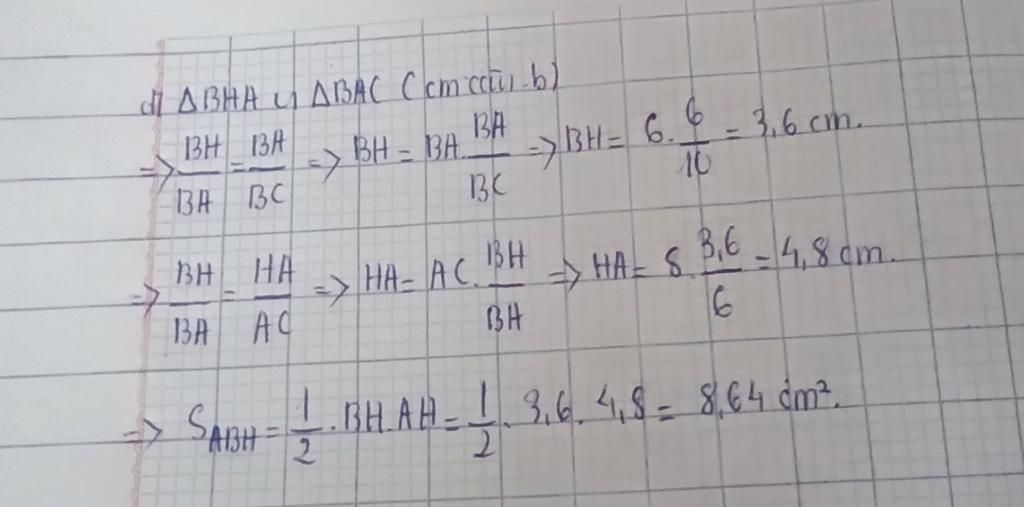 d) ΔBHA ∽ ΔBAC (cm câu b)
=> BH/BA = BA/BC => BH = BA. BA/BC => BH = 6. 6/10 = 3,6 cm.
=> BH/BA = HA/AC => HA = AC. BH/BA => HA = 8. 3,6/6 = 4,8 cm.
=> S_ABH = 1/2 . BH.AH = 1/2 . 3,6. 4,8 = 8,64 cm².